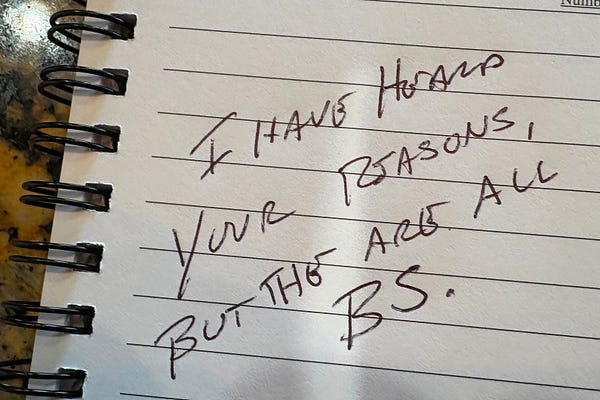 Numb
I HAVE HEARD
YOUR REASONS,
BUT THE ARE ALL
BS.